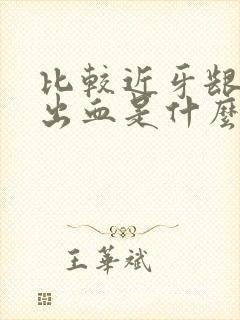 比較近牙龈
出血是什麼
王華斌